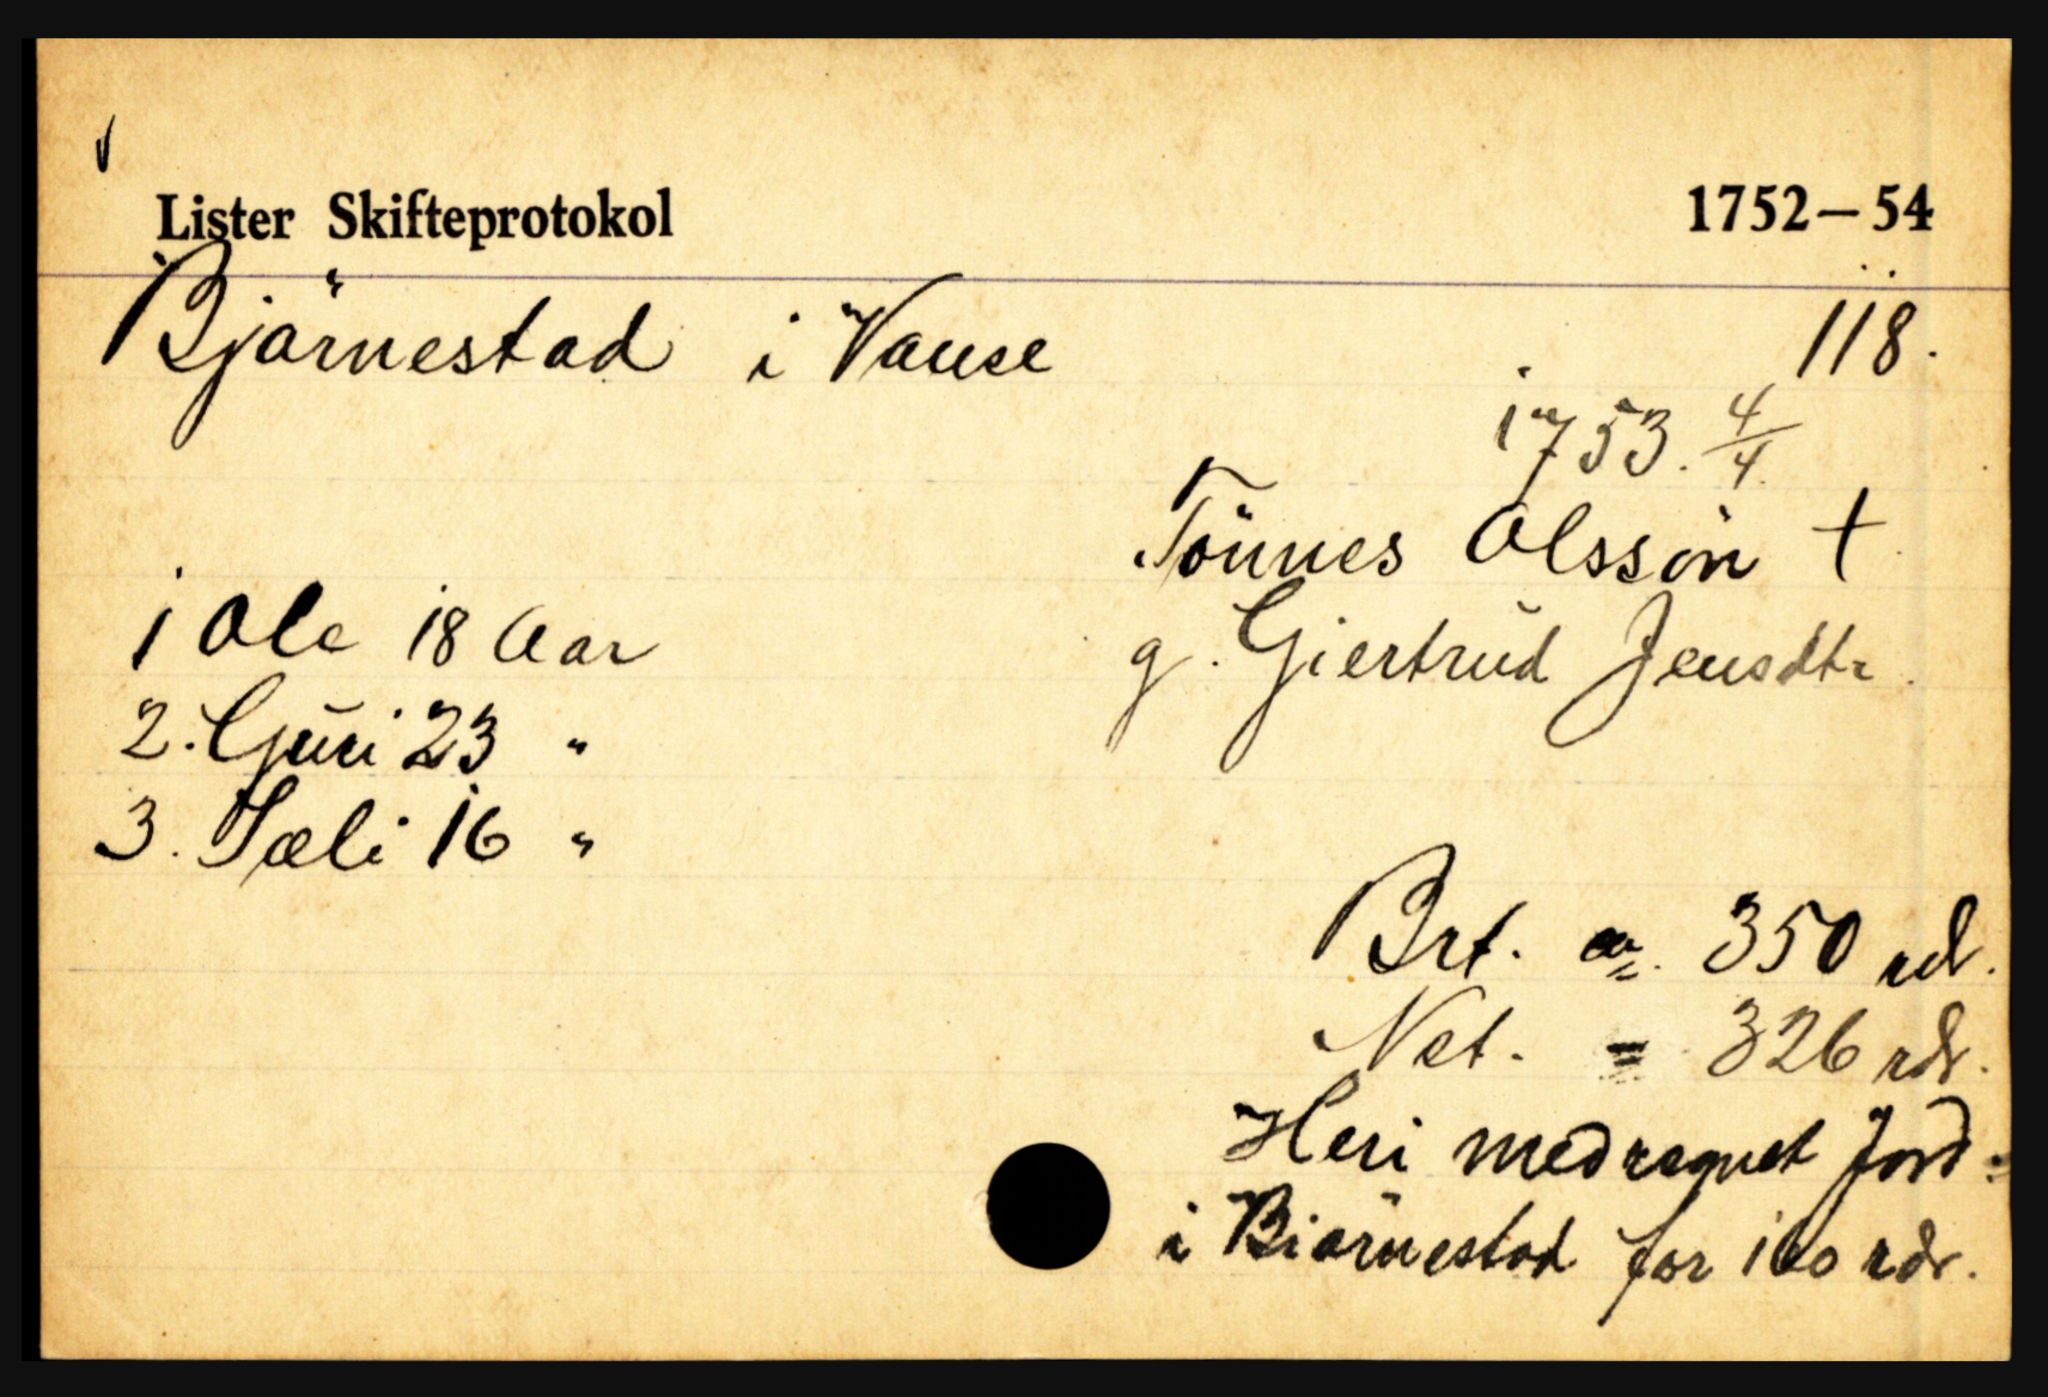 Lister Skifteprotokol 1752-54
Bjärnestad i Vanse 118.
1753. 4/4
Tönnes Olssön †
g. Giertrud Jensdtr.
1 Ole 18 Aar
2. Guri 23 "
3. Sæli 16 "
Brt. = 350 rdl.
Net. = 326 rdr.
Heri medregnet Jord
i Biärnestad for 160 rdr.